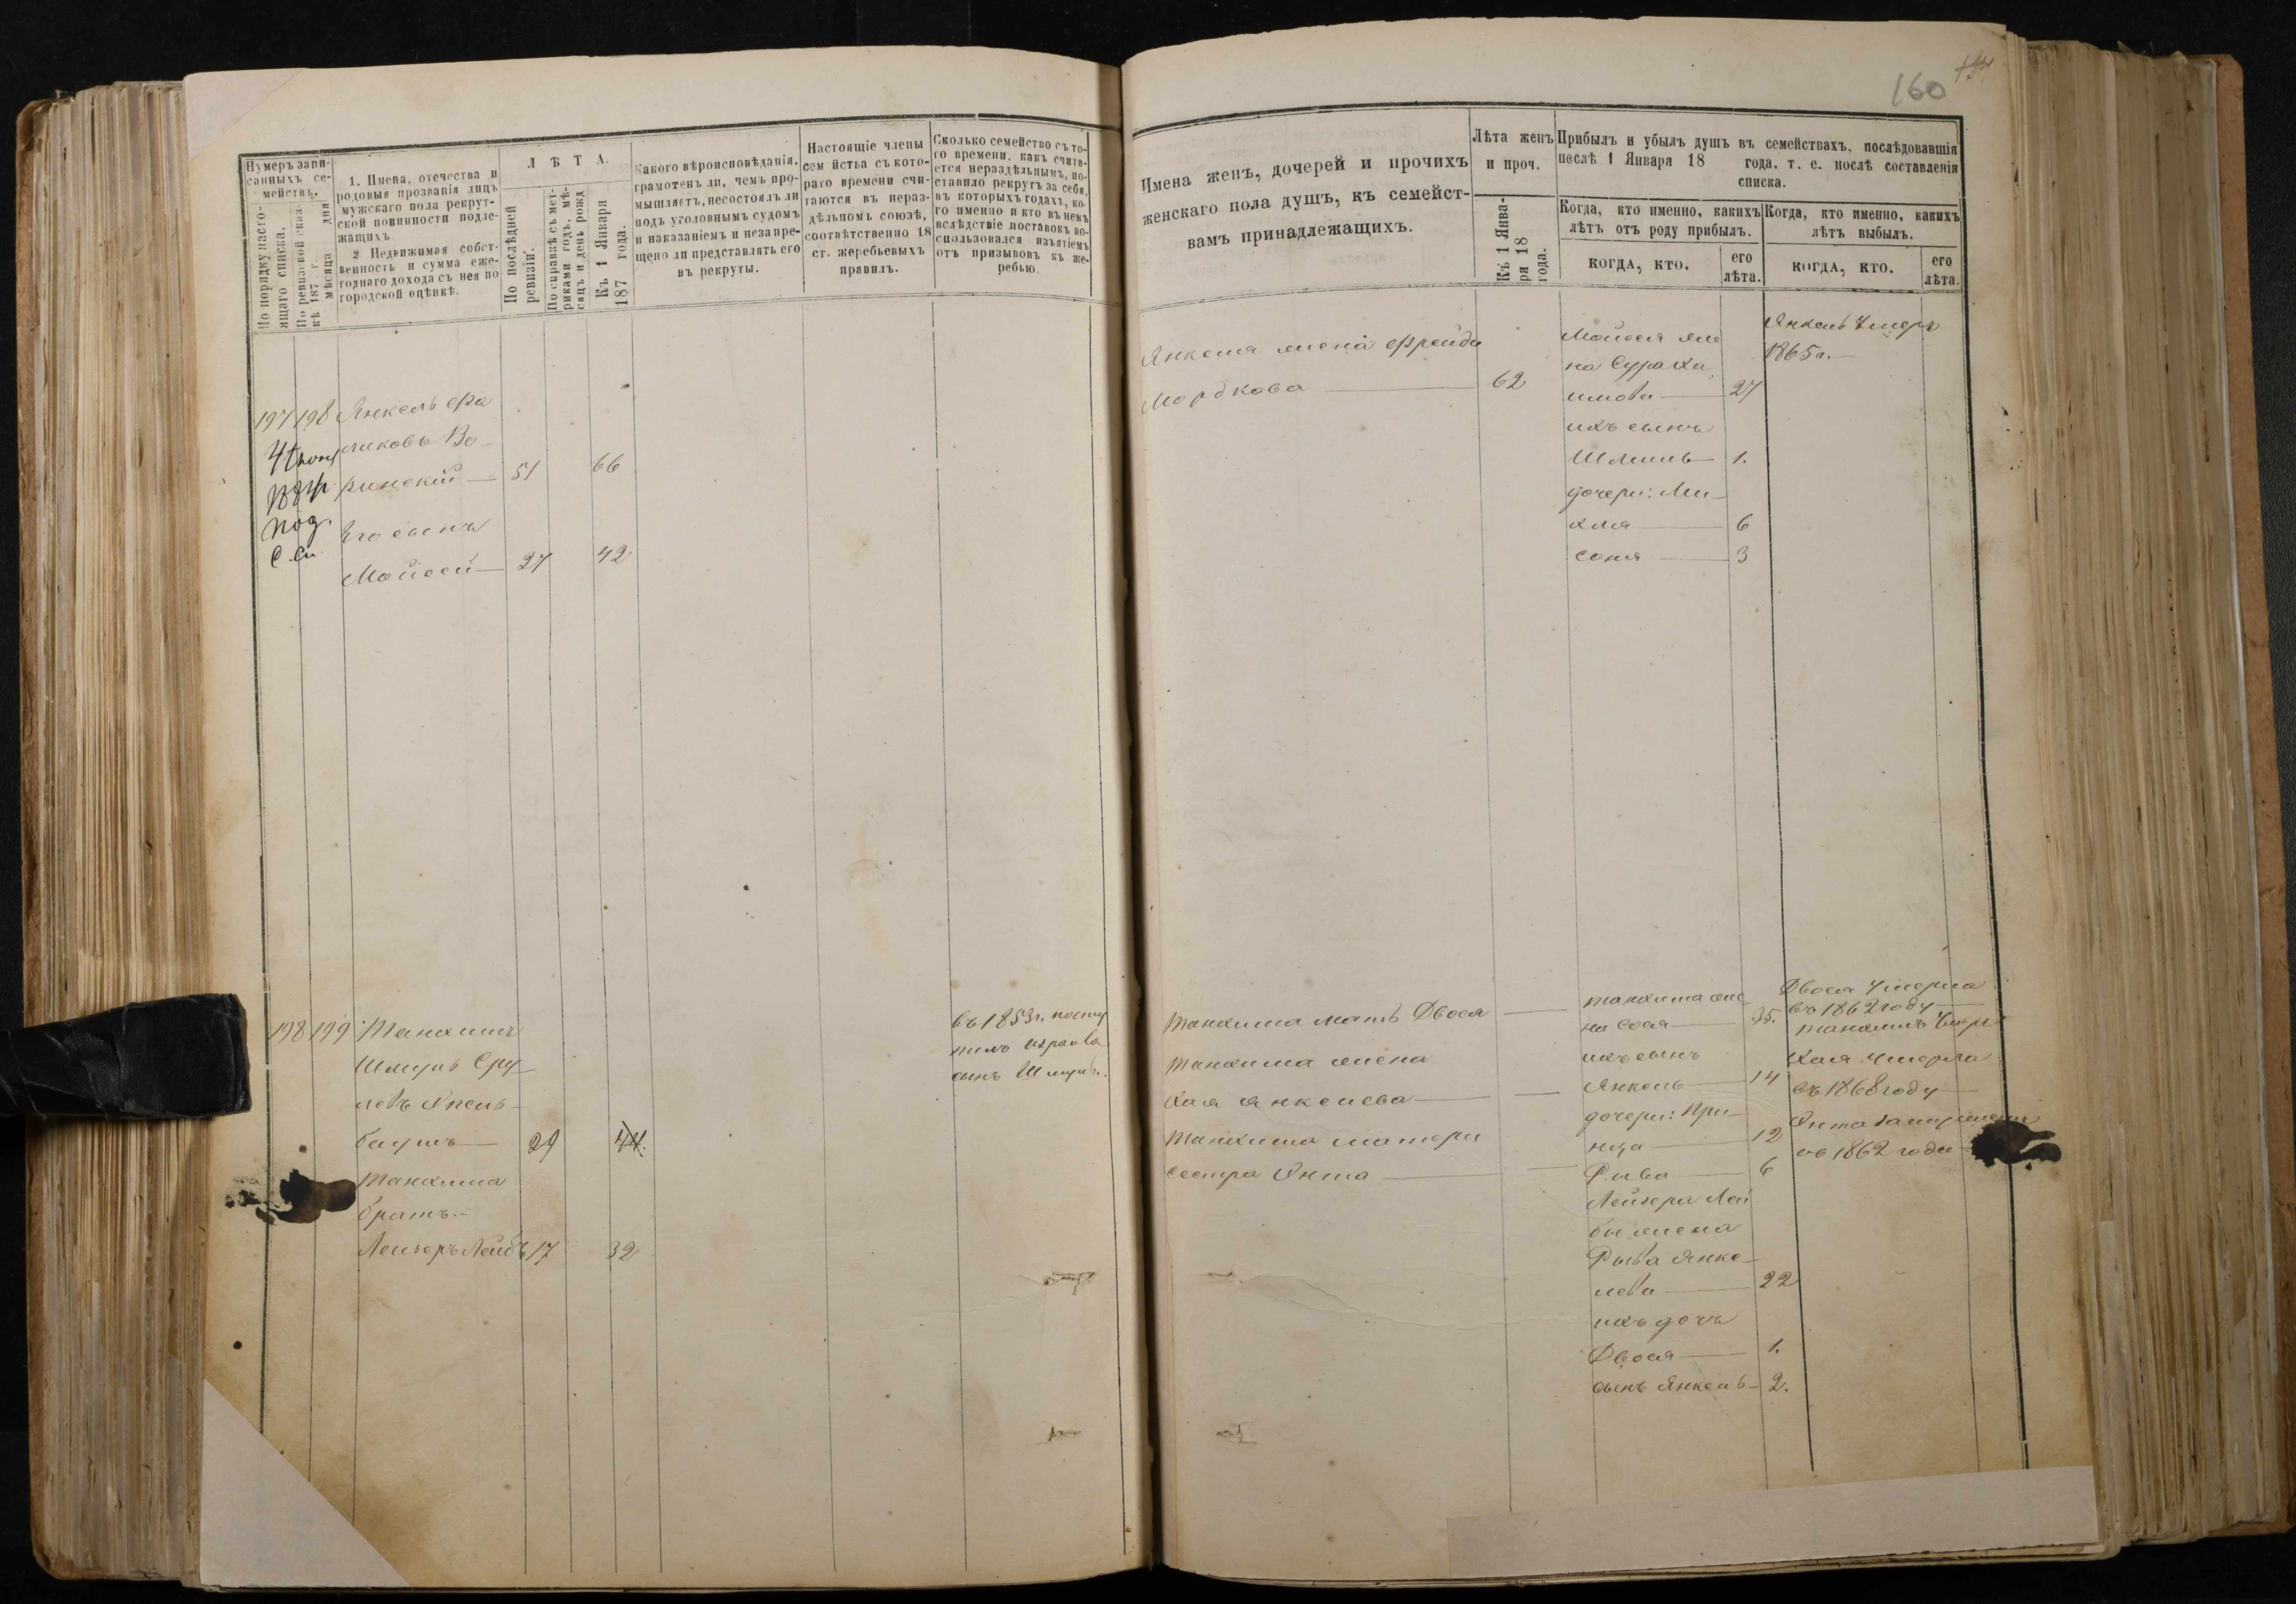 160
Нумеръ запи-
санныхъ се-
мействъ.
По порядку насто-
ящаго списка.
По ревизской сказ-
кѣ 187 г.
мѣсяца дня
1. Имена, отечества и
родовыя прозванія лицъ
мужскаго пола рекрут-
ской повинности подле-
жащихъ
2 Недвижимая собст-
венность и сумма еже-
годнаго дохода съ нея по
городской оцѣнкѣ.
ЛѢТА.
По послѣдней
ревизіи.
По справкѣ съ мет-
риками годъ, мѣ-
сяцъ и день рожд
Къ 1 Января
187 года.
Какого вѣроисповѣданія,
грамотенъ ли, чемъ про-
мышляетъ, несостоялъ ли
подъ уголовнымъ судомъ
и наказаніемъ и незапре-
щено ли представлять его
въ рекруты.
Настоящіе члены
сем йства съ кото-
раго времени счи-
таются въ нераз-
дѣльномъ союзѣ,
соотвѣтственно 18
ст. жеребьевыхъ
правилъ.
Сколько семейство съ то-
го времени, какъ счита-
ется нераздѣльнымъ, по-
ставило рекрутъ за себя,
въ которыхъ годахъ, ко-
го именно и кто въ немъ
вслѣдствіе поставокъ во-
спользовался изъятіемъ
отъ призывовъ къ же-
ребью.
197 198 Янкель
51 66
Его сынъ
Мойсей 27 42
под.
198 199 Танхимъ
Шмуль Сру-
левъ
29 44.
Танхима
братъ.-
Лейзеръ Лейбъ 17 32
въ 1853г. посту
пилъ
сынъ Шмуль.
Имена женъ, дочерей и прочихъ
женскаго пола душъ, къ семейст-
вамъ принадлежащихъ.
Лѣта женъ
и проч.
Къ 1 Янва-
ря 18
года.
Прибылъ и убылъ душъ въ семействахъ, послѣдовавшія
послѣ 1 Января 18 года, т. е. послѣ составленія
списка.
Когда, кто именно, какихъ
лѣтъ отъ роду прибылъ.
Когда, кто именно, какихъ
лѣтъ выбылъ.
КОГДА, КТО.
его
лѣта.
КОГДА, КТО.
его
лѣта.
Янкеля жена Фрейда
Мордкова 62
Мойсея же
на Сура Ха
имова 27
ихъ сынъ
Шлиомъ 1.
дочери: Ми-
хля 6
Соня 3
Янкель Умеръ
1865г.
Танхима мать Двося
Танхима жена
Хая Янкелева
Танхима матери
сестра Янта
Танхима же
на Сося 35.
ихъ сынъ
Янкель 14
дочери: При-
нца 12
Рыва 6
Лейзера Лей
бы жена
Рыва Янке-
лева 22
ихъ дочь
Двося 1.
сынъ Янкель 2.
Двося Умерла
въ 1862 году
Танхимъ
Хая Умерла
въ 1868 году
Янта замужемъ
въ 1862 году